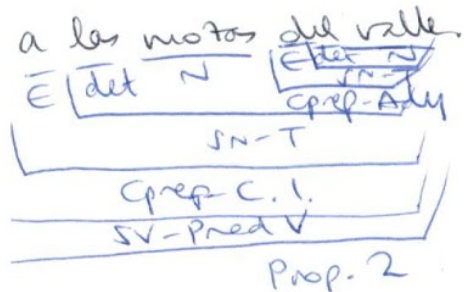 a las mozas del valle
E det N E det N
SN-T
Cprep-Ady
SN-T
Cprep-C.I.
SV-Pred V
Prop. 2